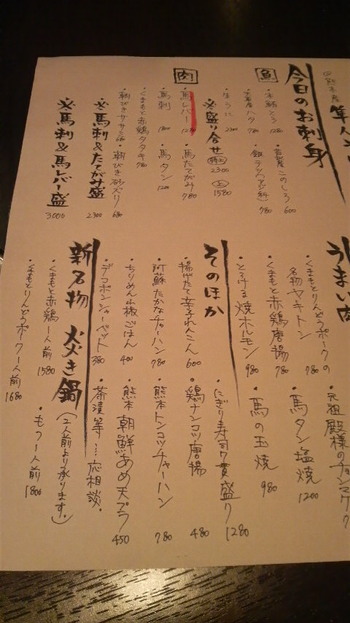 今日のお刺身
魚
・本鮪とろ 980
・宮産このしろ 600
・うに
※盛り合せ 2300 1580
肉
・馬レバー
・馬たてがみ 780
・馬刺
・馬タン 1200
・くまもと赤鶏タタキ 780
・朝びきササミ
・朝びき砂ズリ 680
※馬刺&たてがみ盛 2300
※馬刺&馬レバー盛 3000
うまい肉
・元祖殿様のチョンマゲ
・くまもとりんどうポークの
・名物ヤキトン 780
・馬タン塩焼 1200
・くまもと赤鶏唐揚 780
・馬の玉焼 980
・とろける焼ホルモン 980
そのほか
・にぎり寿司7貫盛り 1280
・揚げたて辛子れんこん 600
・鶏ナンコツ唐揚 480
・阿蘇たかなチャーハン 780
・熊本トンコツチャーハン 780
・ちりめん山椒ごはん 400
・熊本朝鮮あめ天プラ 450
・デコポンシャーベット 380
・茶漬等…応相談。
新名物 火き鍋
(2人前より承ります。)
・くまもと赤鶏1人前 1580
・もつ1人前 1800
・くまもとりんどうポーク1人前 1680